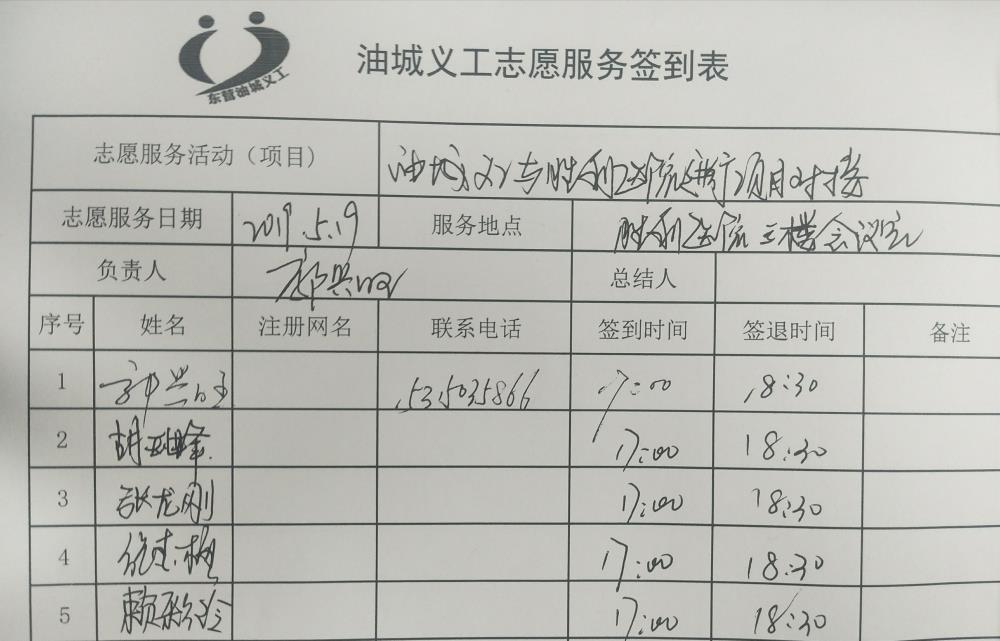 东营油城义工
油城义工志愿服务签到表
志愿服务活动（项目） 油城义工与胜利医院进行项目对接
志愿服务日期 2019.5.19 服务地点 胜利医院三楼会议室
负责人 总结人
序号 姓名 注册网名 联系电话 签到时间 签退时间 备注
1 15315035866 17:00 18:30
2 胡 峰 17:00 18:30
3 张龙刚 17:00 18:30
4 17:00 18:30
5 赖 玲 17:00 18:30